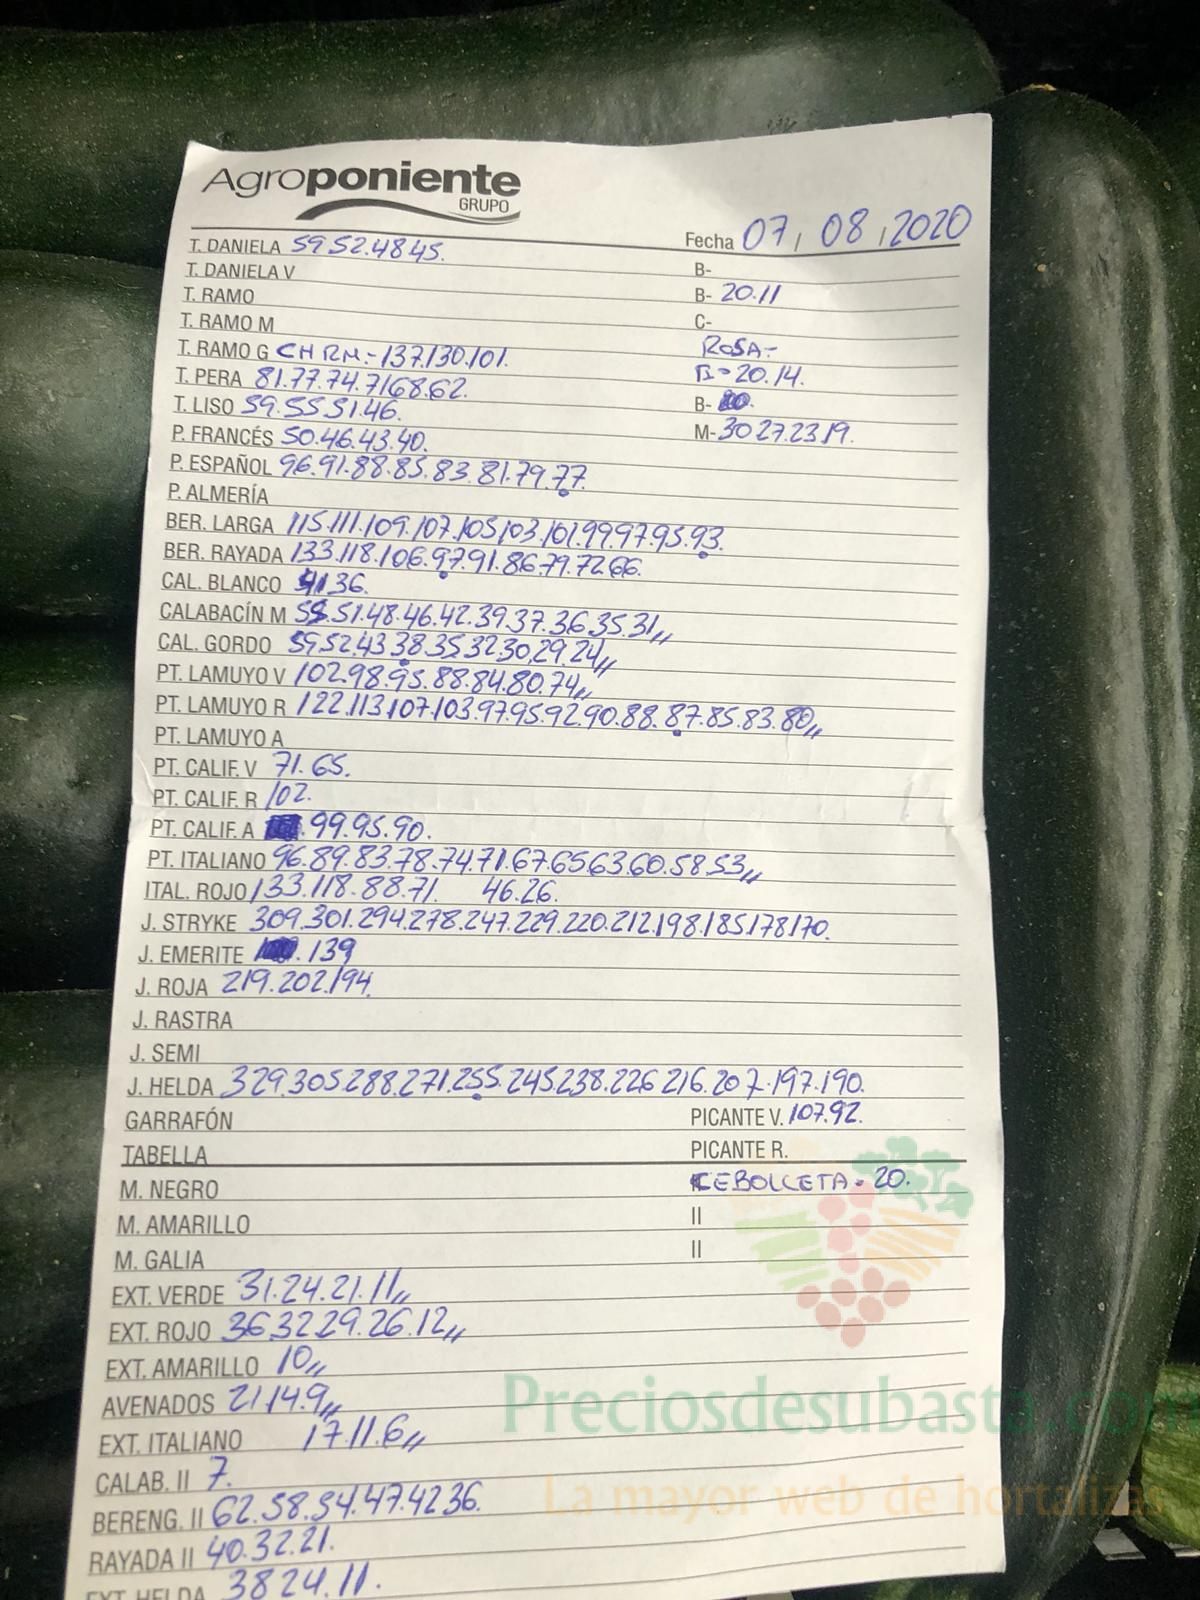 Agroponiente
GRUPO
Fecha 07, 08, 2020
T. DANIELA 59.52.48.45.
B-
T. DANELA V
B- 20.11
T. RAMO
C-
T. RAMO M
ROSA-
T. RAMO G CH RM.- 137.130.101.
B- 20.14.
T. PERA 81.77.74.71.68.62.
B-
T. LISO 59.55.51.46.
M- 30.27.23.19.
P. FRANCÉS 50.46.43.40.
P. ESPAÑOL 96.91.88.85.83.81.79.77.
P. ALMERÍA
BER. LARGA 115.111.109.107.105.103.101.99.97.95.93.
BER. RAYADA 133.118.106.97.91.86.79.72.66.
CAL. BLANCO 41.36.
CALABACÍN M 55.51.48.46.42.39.37.36.35.31,,
CAL. GORDO 59.52.43.38.35.32.30.29.24,,
PT. LAMUYO V 102.98.95.88.84.80.74,,
PT. LAMUYO R 122.113.107.103.97.95.92.90.88.87.85.83.80,,
PT. LAMUYO A
PT. CALIF. V 71.65.
PT. CALIF. R 102.
PT. CALIF. A .99.95.90.
PT. ITALIANO 96.89.83.78.74.71.67.65.63.60.58.53,,
ITAL. ROJO 133.118.88.71. 46.26.
J. STRYKE 309.301.294.278.247.229.220.212.198.185.178.170.
J. EMERITE .139
J. ROJA 219.202.194.
J. RASTRA
J. SEMI
J. HELDA 329.305.288.271.255.245.238.226.216.207.197.190.
GARRAFÓN
PICANTE V. 107.92.
TABELLA
PICANTE R.
M. NEGRO
CEBOLLETA - 20.
M. AMARILLO
II
M. GALIA
II
EXT. VERDE 31.24.21.11,,
EXT. ROJO 36.32.29.26.12,,
EXT. AMARILLO 10,,
AVENADOS 21.14.9,,
EXT. ITALIANO 17.11.6,,
CALAB. II 7.
BERENG. II 62.58.54.47.42.36.
RAYADA II 40.32.21.
EXT. HELDA 38.24.11.
Preciosdesubasta.com
La mayor web de hortalizas